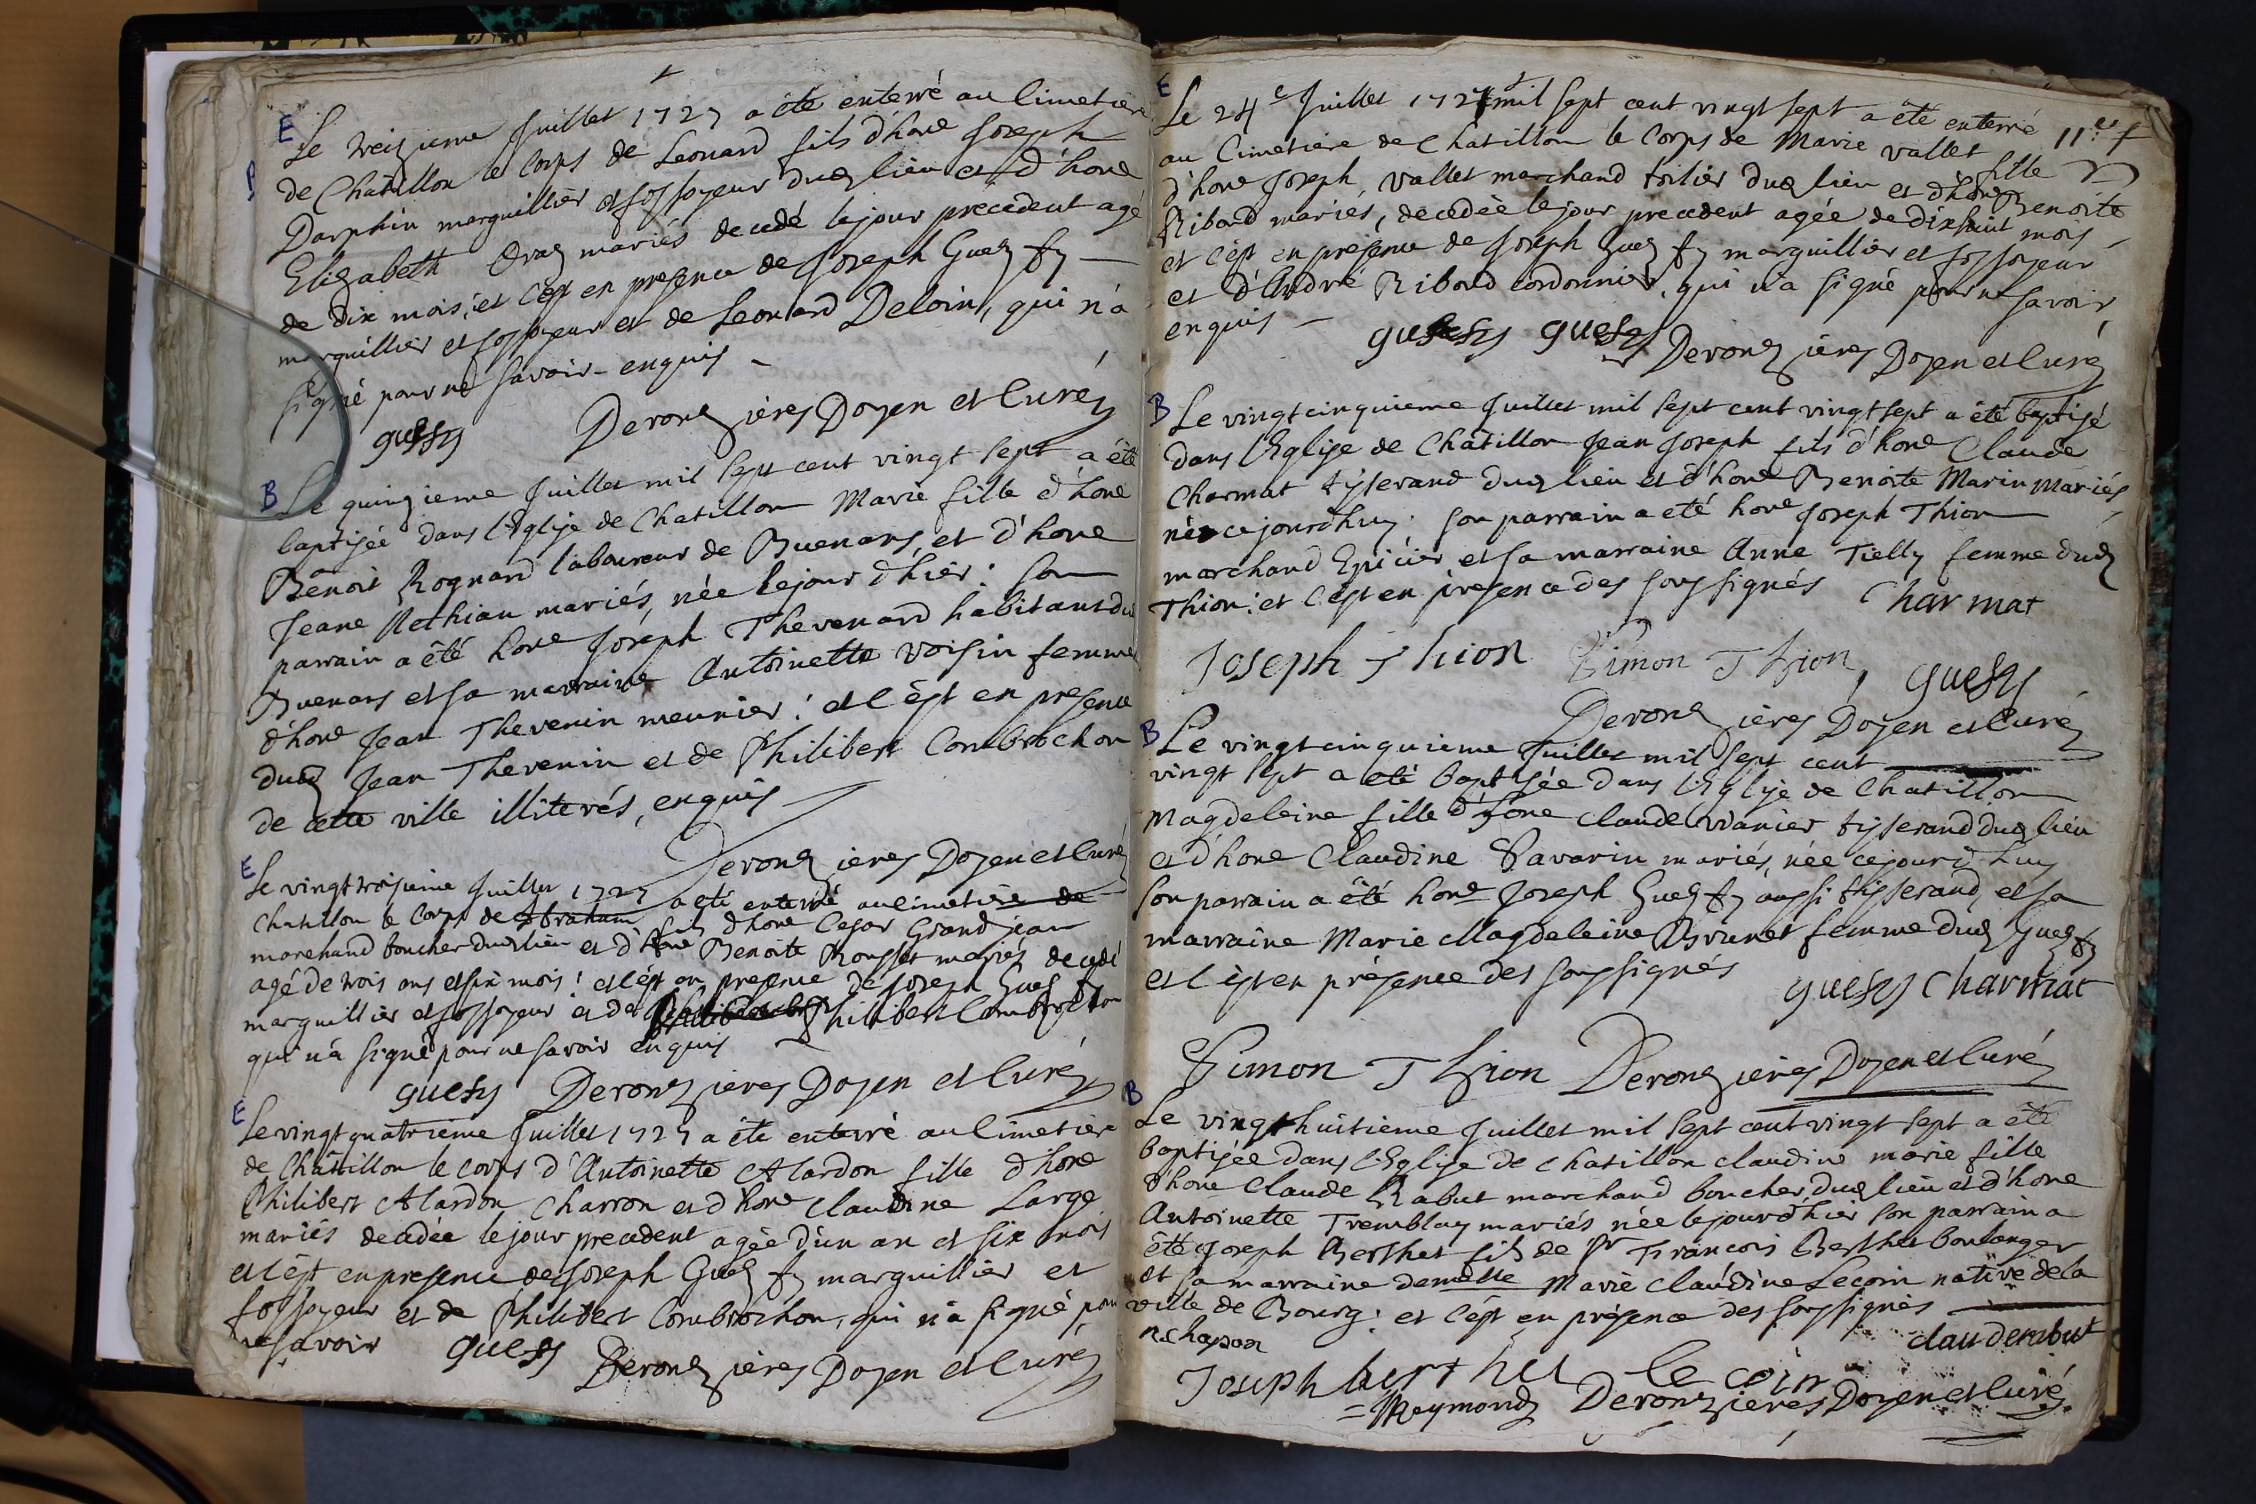 E
Le treizieme Juillet 1727 a été enterré au Cimetiere
de Chatillon le Corps de Leonard fils d'hone Joseph
Darphin marguillier et fossoyeur dud lieu et d'hone
Elizabeth Oraz mariés decedé le jour precedent agé
de dix mois; et c'est en presence de Joseph Guez fy
marguillier et fossoyeur et de Leonard Deloin, qui n'a
signé pour ne savoir enquis
guesfy Derouzieres Doyen et Curé
B
Le quinzieme Juillet mil sept cent vingt sept a été
baptisée dans l'Eglise de Chatillon Marie fille d'hone
Benoit Rognard laboureur de Buenans, et d'hone
Jeane Methian mariés, née le jour d'hier: son
parrain a été hone Joseph Thevenard habitant du
Buenans et sa marraine Antoinette Voisin femme
d'hone Jean Thevenin meunier: et c'est en presence
dud Jean Thevenin et de Philibert Combrochon
de cette ville illiterés, enquis
Derouzieres Doyen et Curé
E
Le vingt troisieme Juillet 1727 a été enterré au cimetiere de
Chatillon le Corps de Abraham fils d'hone Cesar Grandjean
marchand boucher dud lieu et d'hone Benoite Rousset mariés decedé
agé de trois ans et six mois: et c'est en presence de Joseph Guez fy
marguillier et fossoyeur et de Philibert Combrochon
qui n'a signé pour ne savoir enquis
guesfy Derouzieres Doyen et Curé
E
Le vingt quatrieme Juillet 1727 a été enterré au Cimetiere
de Châtillon le corps d'Antoinette Alardon fille d'hone
Philibert Alardon Charron et d'hone Claudine Large
mariés decedée le jour precedent agée d'un an et six mois
et c'est en presence de Joseph Guez fy marguillier et
fossoyeur et de Philibert Combrochon, qui n'a signé pour
ne savoir guesfy Derouzieres Doyen et Curé
E
Le 24e Juillet 1727 mil sept cent vingt sept a été enterré
au Cimetiere de Chatillon le Corps de Marie Vallet fille
d'hone Joseph, Vallet marchand toilier dud lieu et d'hone Benoite
Riboud mariés, decedée le jour precedent agée de dixhuit mois
et c'est en presence de Joseph Guez fy marguillier et fossoyeur
et d'André Riboud cordonnier, qui n'a signé pour ne savoir
enquis guesfy guesfy Derouzieres Doyen et Curé
11e f
B
Le vingt cinquieme Juillet mil sept cent vingt sept a été baptisé
dans l'Eglise de Châtillon Jean Joseph fils d'hone Claude
Charmat tisserand dud lieu et d'hone Benoite Marin mariés,
né ce jourdhuy. son parrain a été hone Joseph Thion
marchand Epicier, et sa marraine Anne Tielly femme dud
Thion: et c'est en presence des soussignés Charmat
Joseph Thion Simon Thion guesfy
Derouzieres Doyen et Curé
B
Le vingt cinquieme Juillet mil sept cent
vingt sept a été baptisée dans l'Eglise de Chatillon
Magdeleine fille d'hone Claude Vvanier tisserand dud lieu
et d'hone Claudine Savarin mariés, née ce jourd'huy
son parrain a été hone Joseph Guez fy aussi tisserand, et sa
marraine Marie Magdeleine Brunet femme dud Guez fy
et c'est en présence des soussignés guesfy Charmat
Simon Thion Derouzieres Doyen et Curé
B
Le vingt huitieme Juillet mil sept cent vingt sept a été
baptisée dans l'Eglise de Chatillon Claudine marie fille
d'hone Claude Rabut marchand boucher dud lieu et d'hone
Antoinette Tremblay mariés née le jour d'hier son parrain a
été Joseph Berthet fils de Sr François Berthet boulanger
et sa marraine demelle Marie Claudine Lecoin native de la
ville de Bourg: et c'est en présence des soussignés
n chapon clauderabut
Joseph berthet le coin
Reymond Derouzieres Doyen et Curé